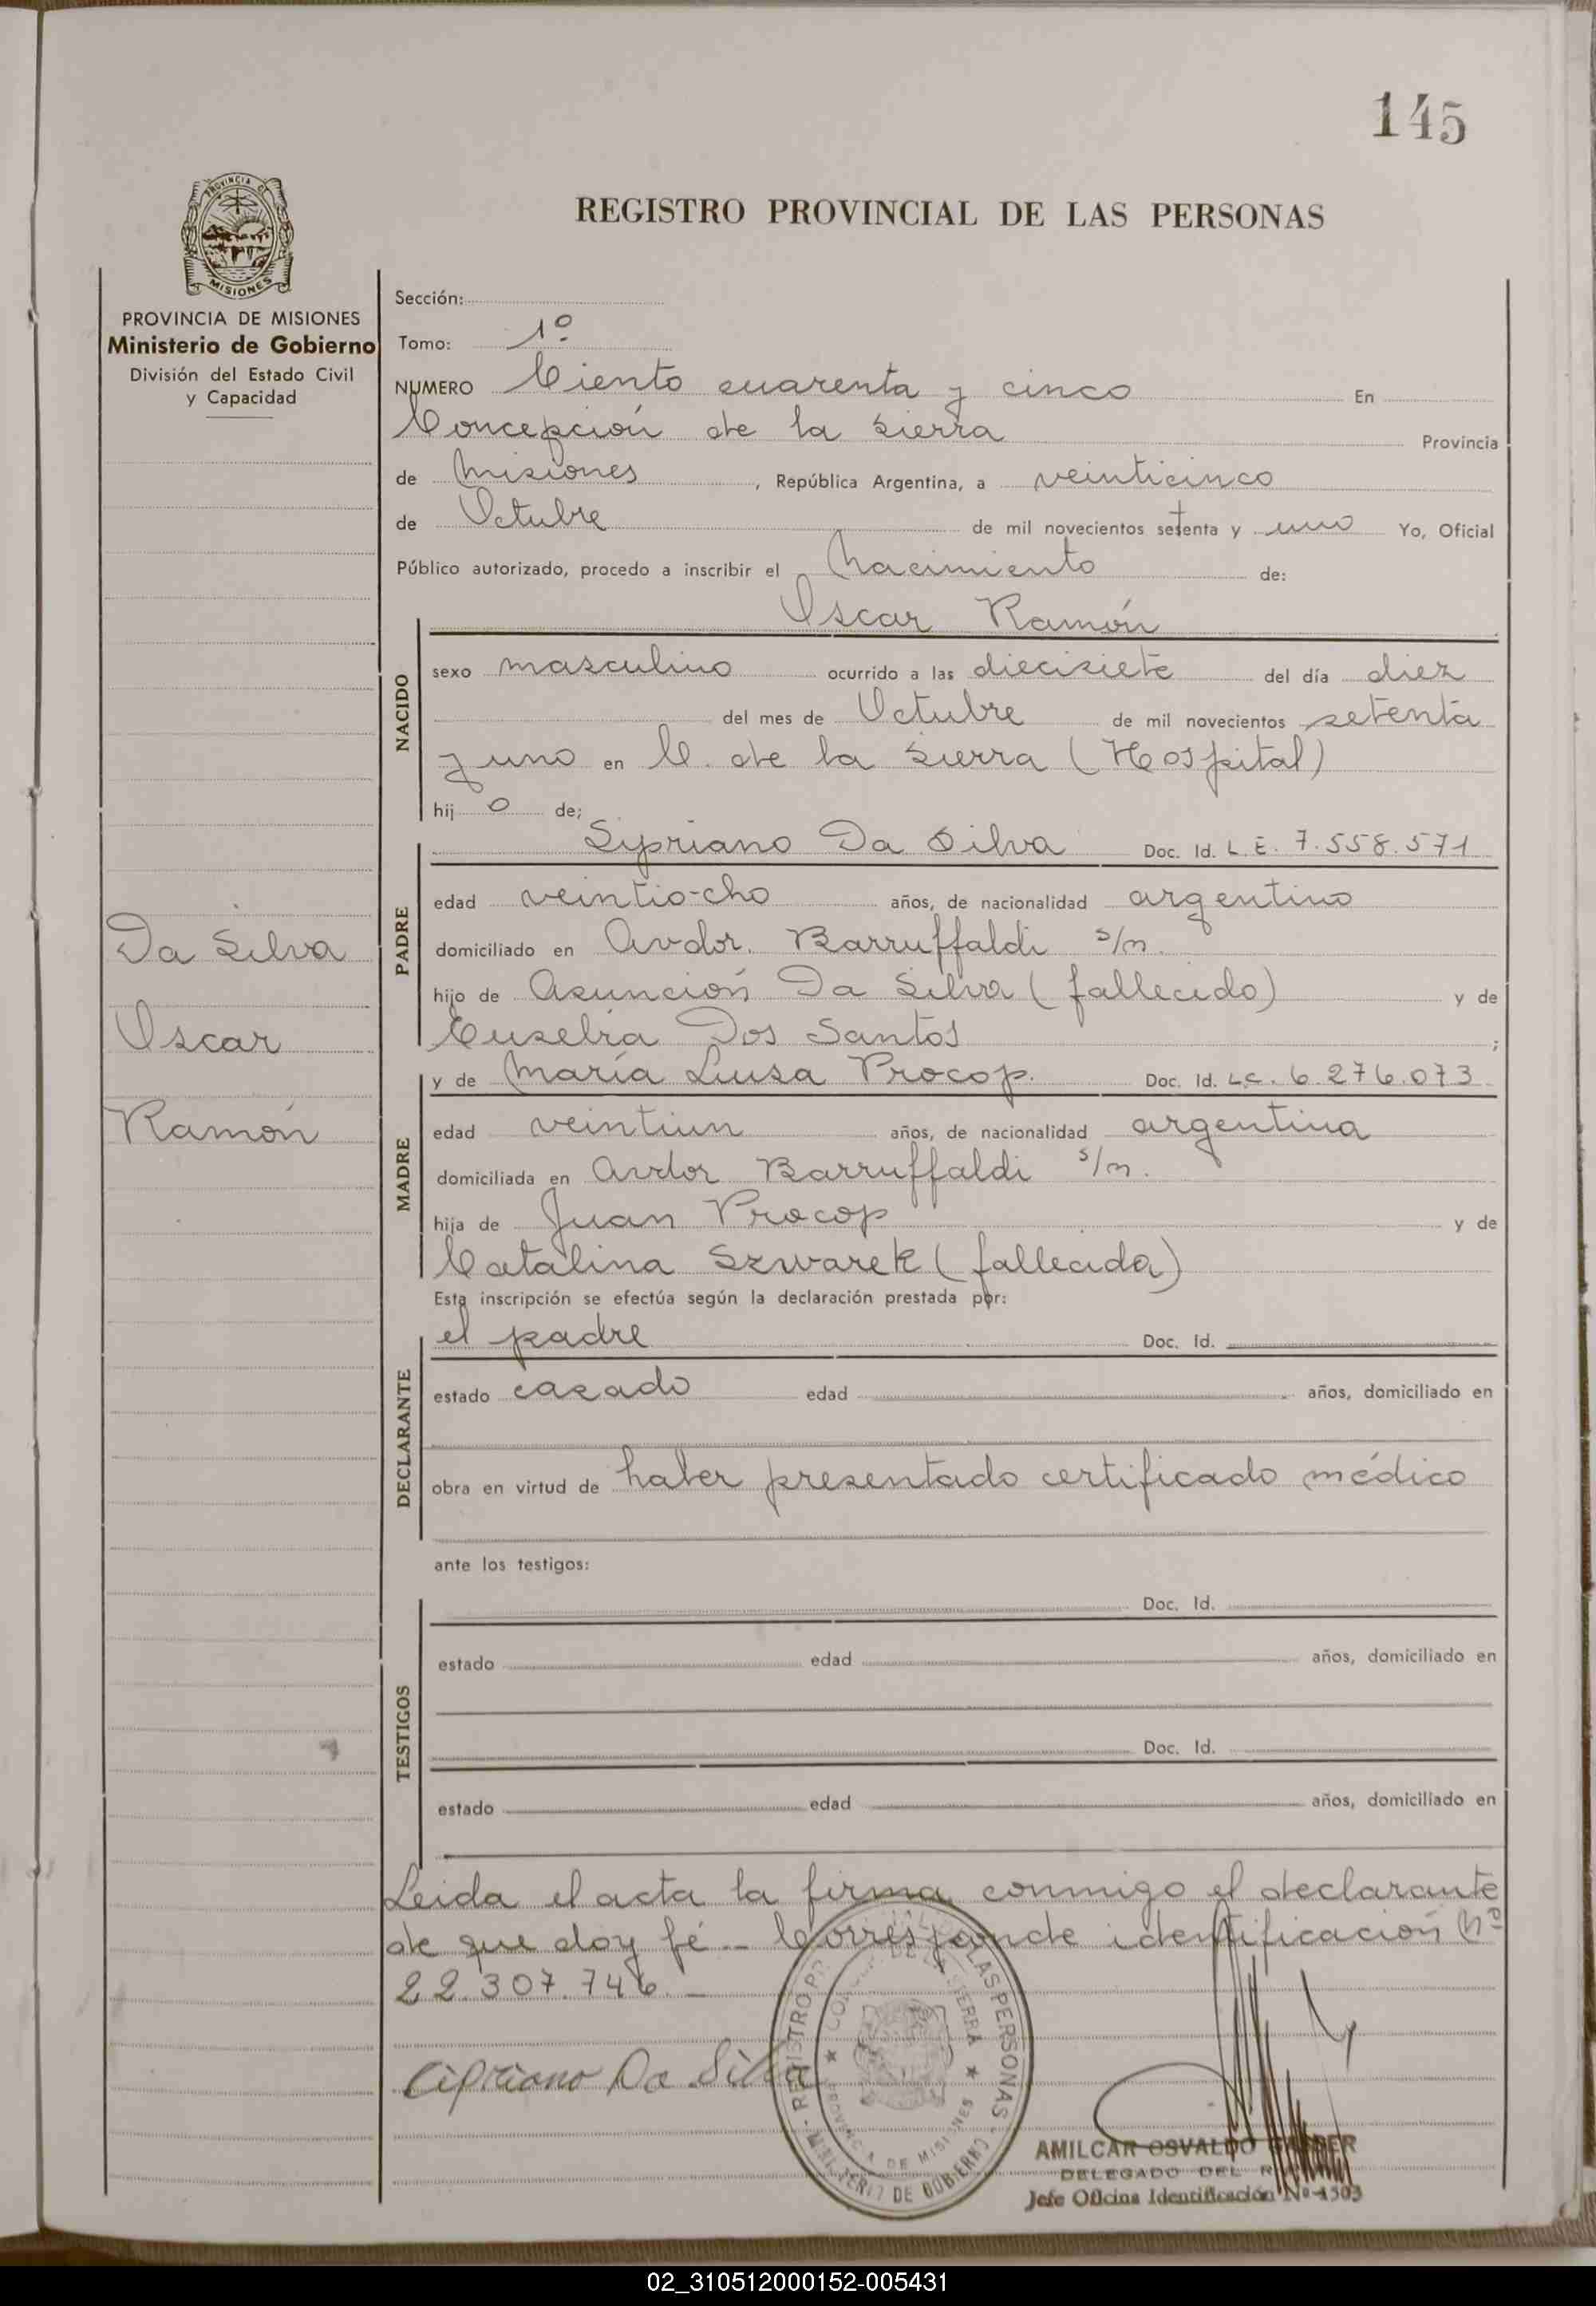 145
PROVINCIA DE
MISIONES
REGISTRO PROVINCIAL DE LAS PERSONAS
PROVINCIA DE MISIONES
Ministerio de Gobierno
División del Estado Civil
y Capacidad
Da Silva
Oscar
Ramón
Sección:
Tomo: 1º
NUMERO Ciento cuarenta y cinco En
Concepción de la Sierra Provincia
de Misiones, República Argentina, a veinticinco
de Octubre de mil novecientos setenta y uno Yo, Oficial
Público autorizado, procedo a inscribir el Nacimiento de:
Oscar Ramón
NACIDO
sexo masculino ocurrido a las diecisiete del día diez
del mes de Octubre de mil novecientos setenta
y uno en C. de la Sierra (Hospital)
hij o de;
PADRE
Sypriano Da Silva Doc. Id. L.E. 7.558.571
edad veintiocho años, de nacionalidad argentino
domiciliado en Avdor. Barruffaldi s/n.
hijo de Asunción Da Silva (fallecido) y de
Euselia Dos Santos ;
MADRE
y de María Luisa Procop. Doc. Id. L.C. 6.276.073
edad veintiun años, de nacionalidad argentina
domiciliada en Avdor Barruffaldi s/n.
hija de Juan Procop y de
Catalina Szwarek (fallecida)
Esta inscripción se efectúa según la declaración prestada por:
DECLARANTE
el padre Doc. Id.
estado casado edad años, domiciliado en
obra en virtud de haber presentado certificado médico
ante los testigos:
TESTIGOS
Doc. Id.
estado edad años, domiciliado en
Doc. Id.
estado edad años, domiciliado en
Leida el acta la firma conmigo el declarante
de que doy fé.- Corresponde identificación Nº
22.307.746.-
Cipriano Da Silva
REGISTRO PR LAS PERSONAS
MINISTERIO DE GOBIERNO
PROVINCIA DE MISIONES
AMILCAR OSVALDO
DELEGADO DEL
Jefe Oficina Identificación Nº 1503
02_310512000152-005431